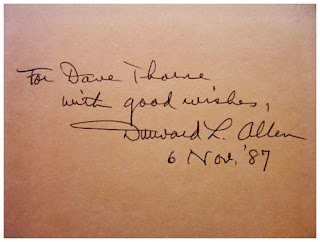 For Dave Thorne
with good wishes,
Durward L. Allen
6 Nov. '87